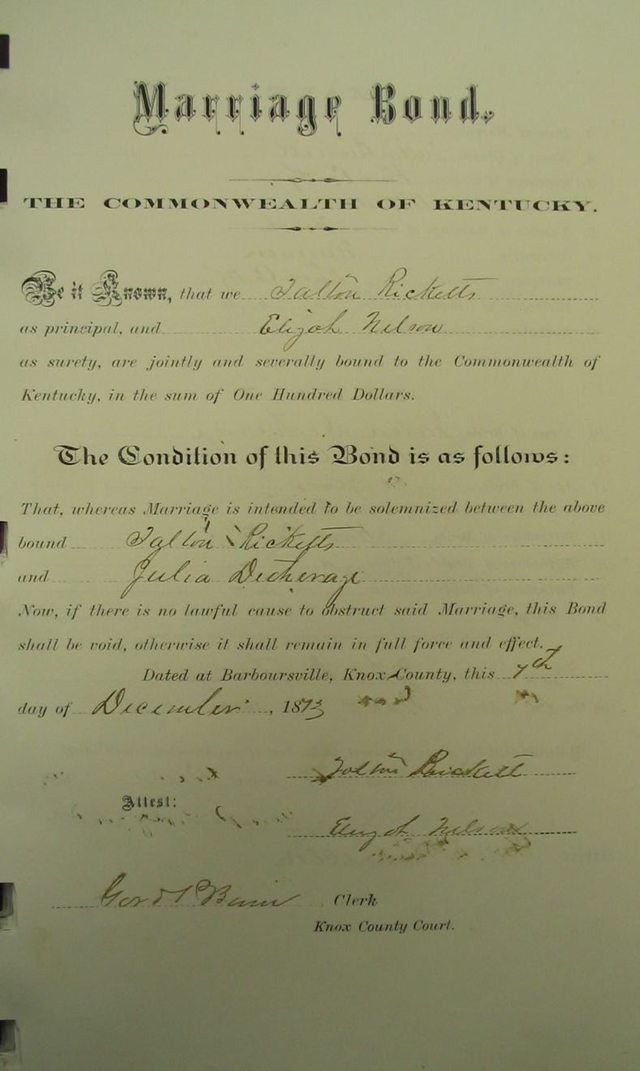 Marriage Bond.
THE COMMONWEALTH OF KENTUCKY.
Be it Known, that we Talton Ricketts
as principal, and Elizah Nelson
as surety, are jointly and severally bound to the Commonwealth of
Kentucky, in the sum of One Hundred Dollars.
The Condition of this Bond is as follows:
That, whereas Marriage is intended to be solemnized between the above
bound Talton Ricketts
and Julia
Now, if there is no lawful cause to obstruct said Marriage, this Bond
shall be void, otherwise it shall remain in full force and effect.
Dated at Barboursville, Knox County, this 7th
day of December, 1873
Talton Rickett
Attest:
Nelson
Clerk
Knox County Court.